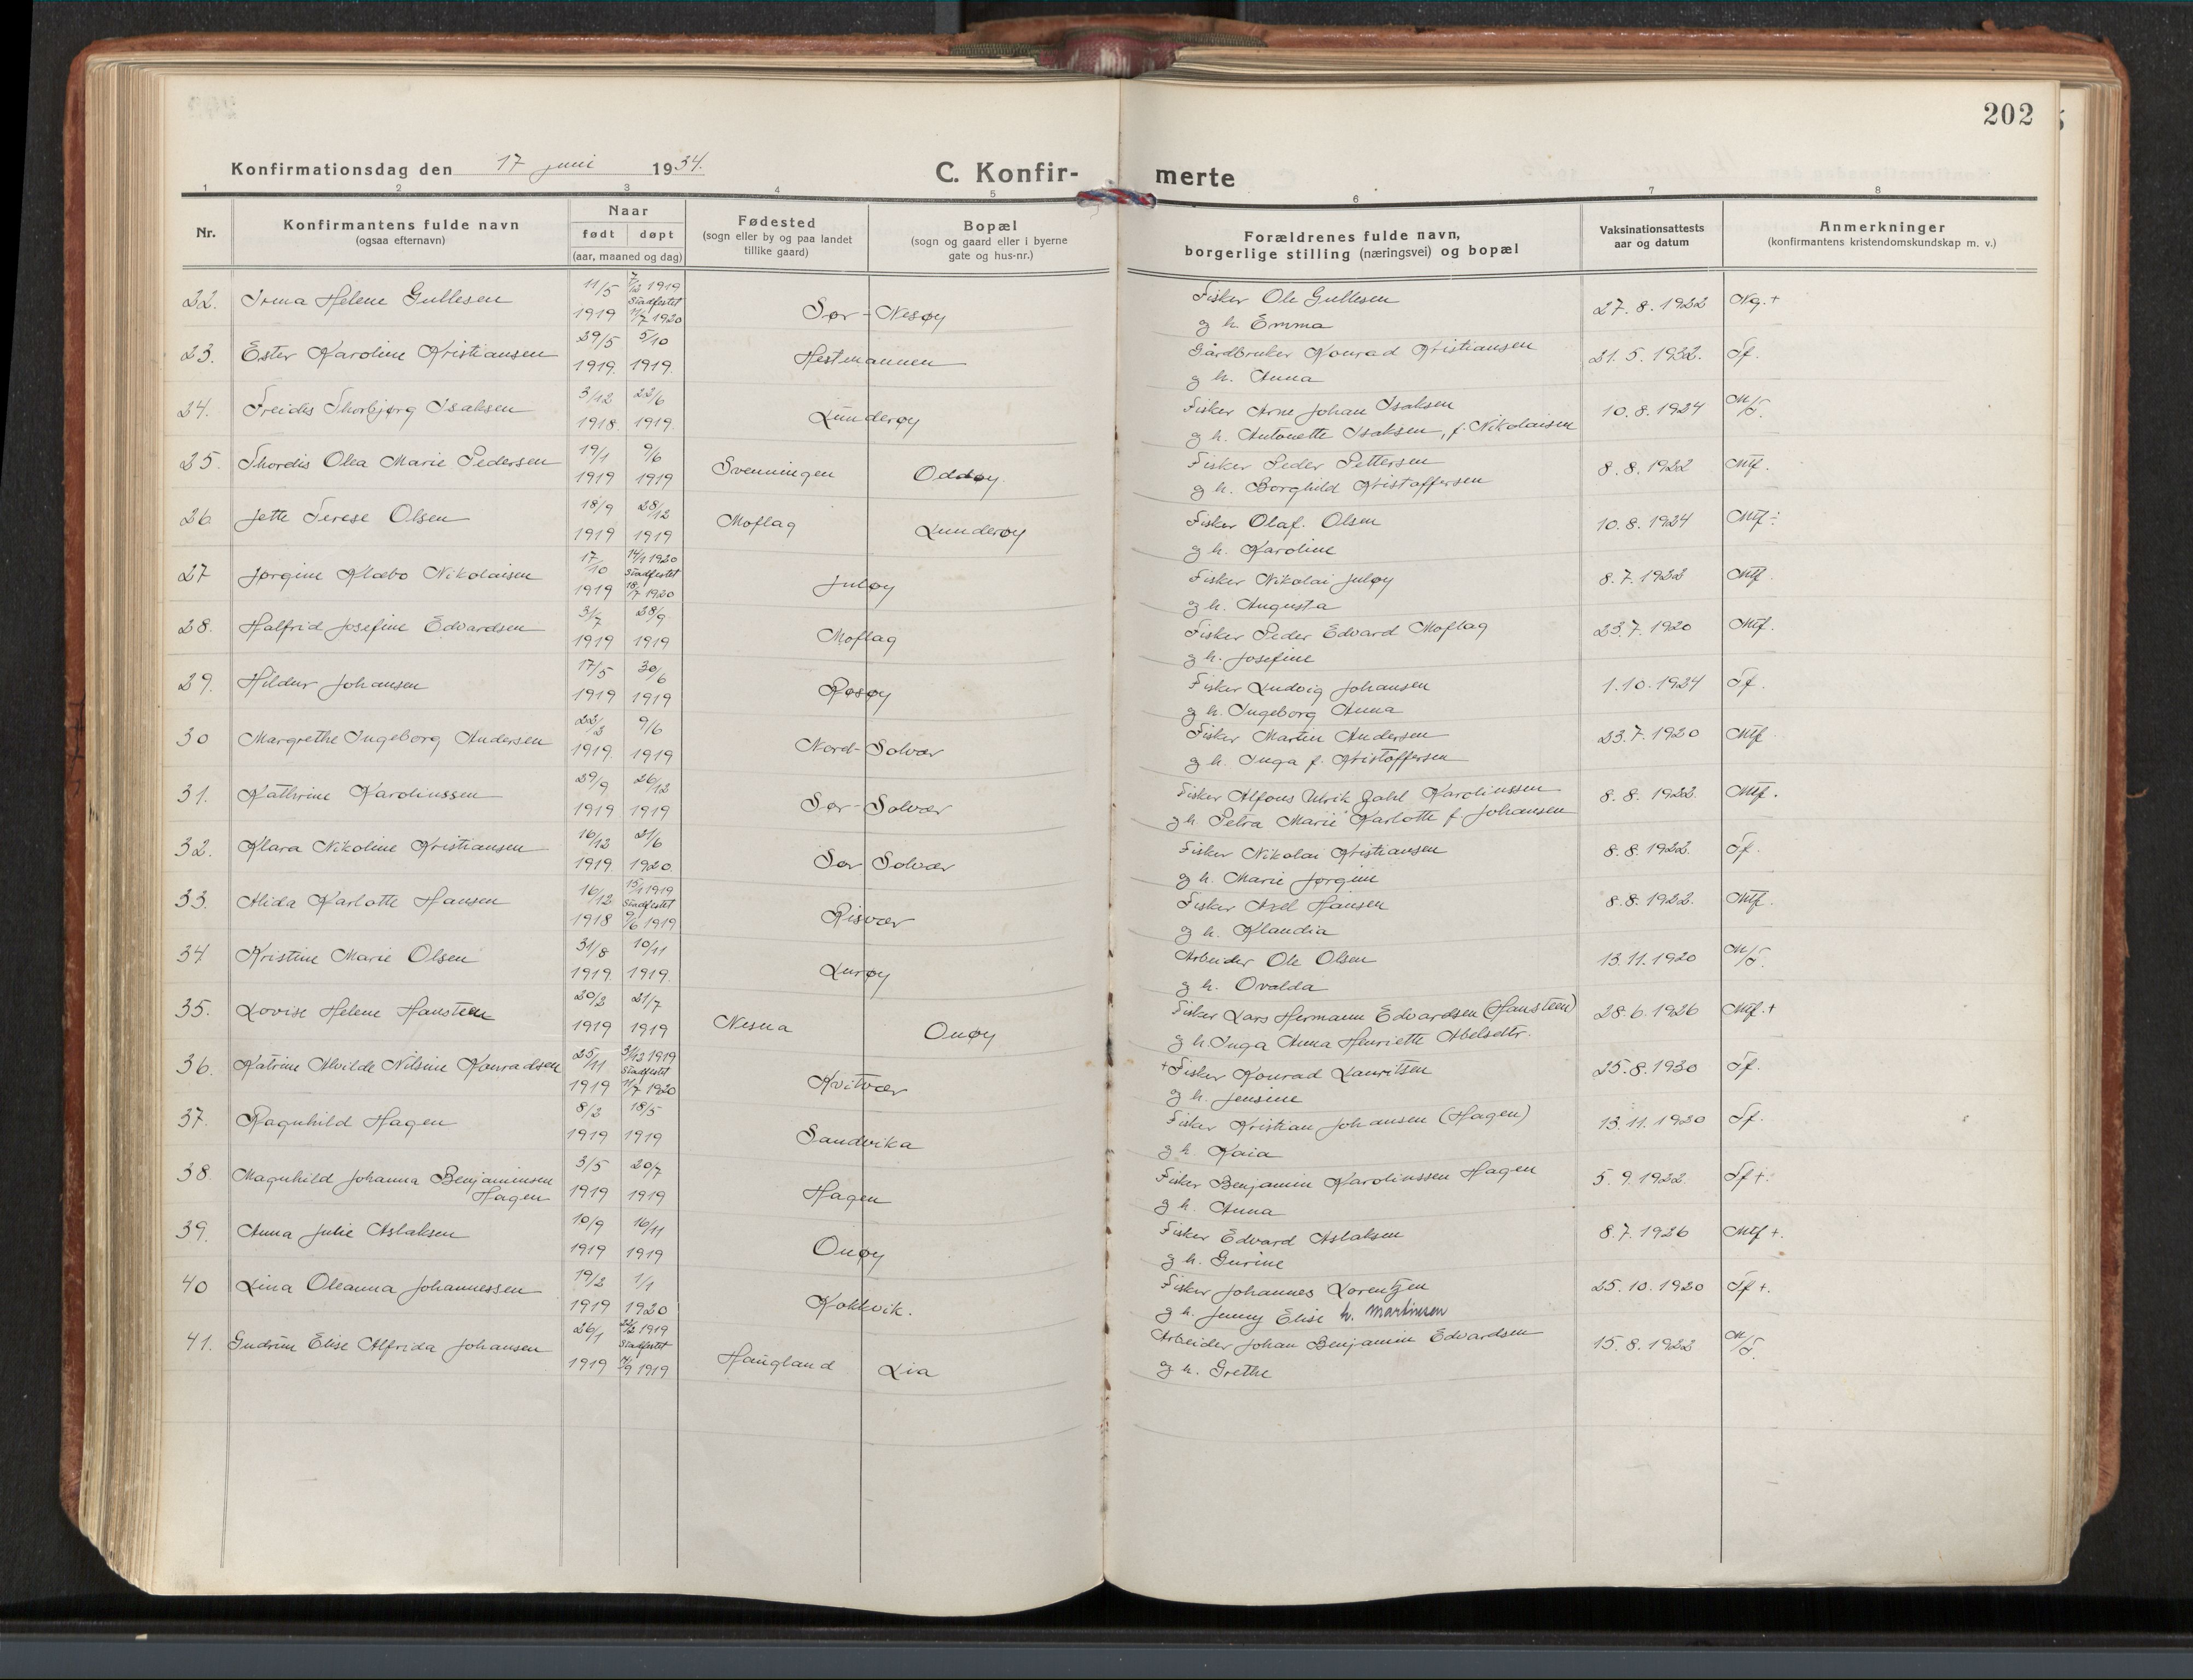 202
Konfirmationsdag den 17 juni 1934.
C. Konfir- merte
1 2 3 4 5 6 7 8
Nr.
Konfirmantens fulde navn
(ogsaa efternavn)
Naar
født døpt
(aar, maaned og dag)
Fødested
(sogn eller by og paa landet
tillike gaard)
Bopæl
(sogn og gaard eller i byerne
gate og hus-nr.)
Forældrenes fulde navn,
borgerlige stilling (næringsvei) og bopæl
Vaksinationsattests
aar og datum
Anmerkninger
(konfirmantens kristendomskundskap m. v.)
22. Irma Helene Gullesen 11/5 1919 7/12 1919 Stadfestet 11/7 1920 Sør-Nesøy Fisker Ole Gullesen 27.8.1922 Ng.+
g h. Emma
23. Ester Karoline Kristiansen 29/5 1919. 5/10 1919. Hestmannen Gårdbruker Konrad Kristiansen 21.5.1932. Tf.
g h. Anna
24. Freidis Thorbjørg Isaksen 3/12 1918. 22/6 1919. Lunderøy Fisker Arne Johan Isaksen 10.8.1924 M/T.
g h. Antonette Isaksen, f. Nikolaisen
25. Thordis Olea Marie Pedersen 19/1 1919 9/6 1919 Svenningen Oddøy. Fisker Peder Pettersen 8.8.1922 Mtf.
g h. Borghild Kristoffersen
26 Jette Terese Olsen 18/9 1919 28/12 1919 Moflag Lunderøy Fisker Olaf. Olsen 10.8.1924 Mtf÷
g h. Karoline
27 Jørgine Klæbo Nikolaisen 17/10 1919 14/1 1920 Stadfestet 18/7 1920 Juløy Fisker Nikolai Juløy 8.7.1922 Mtf.
g h. Augusta
28. Halfrid Josefine Edvardsen 3/7 1919 28/9 1919 Moflag Fisker Peder Edvard Moflag 23.7.1920 Mtf.
g h. Josefine
29. Hildur Johansen 17/5 1919 30/6 1919 Røsøy Fisker Ludvig Johansen 1.10.1924 Tf.
g h. Ingeborg Anna
30 Margrethe Ingeborg Andersen 22/2 1919. 9/6 1919 Nord-Solvær Fisker Martin Andersen 23.7.1920 Mtf
g h. Inga f. Kristoffersen
31. Kathrine Karolinssen 29/9 1919 26/12 1919 Sør-Solvær Fisker Alfons Ulrik Zahl Karolinssen 8.8.1922. Mtf.
g h Petra Marie Karlotte f Johansen
32. Klara Nikoline Kristiansen 16/12 1919. 21/6 1920. Sør Solvær Fisker Nikolai Kristiansen 8.8.1922. Tf.
g h. Marie Jørgine
33. Alida Karlotte Hansen 16/12 1918 15/1 1919 Stadfestet 9/6 1919 Risvær Fisker Axel Hansen 8.8.1922. Mtf.
g h. Klaudia
34 Kristine Marie Olsen 31/8 1919. 10/11 1919. Lurøy Arbeider Ole Olsen 13.11.1920 M/T.
g h. Ovalda
35. Lovise Helene Hansteen 20/2 1919 21/7 1919 Nesna Onøy Fisker Lars Hermann Edvardsen (Hansteen) 28.6.1926 Mtf.+
g h. Inga Anna Henriette Abelsdtr.
36. Katrine Alvilde Nilsine Konradsen 25/11 1919 31/12 1919 Stadfestet 11/7 1920 Kvitvær +Fisker Konrad Lauritsen 25.8.1930 Tf.
g h. Jensine
37. Ragnhild Hagen 8/2 1919 18/5 1919 Sandvika Fisker Kristian Johansen (Hagen) 13.11.1920 Tf.
g h. Kaia
38. Magnhild Johanna Benjaminsen Hagen 3/5 1919 20/7 1919 Hagen Fisker Benjamin Karolinssen Hagen 5.9.1922 Tf+.
g h. Anna
39. Anna Julie Aslaksen 10/9 1919 16/11 1919 Onøy Fisker Edvard Aslaksen 8.7.1926 Mtf+.
g h. Gurine
40 Lina Oleanna Johannessen 19/2 1919 1/1 1920 Kokkvik. Fisker Johannes Lorentzen 25.10.1920 Tf+.
g h. Jenny Elise h. Martinsen
41. Gudrun Elise Alfrida Johansen 26/1 1919 22/2 1919 Stadfestet 14/9 1919 Haugland Lia Arbeider Johan Benjamin Edvardsen 15.8.1922 M/T.
g h. Grethe